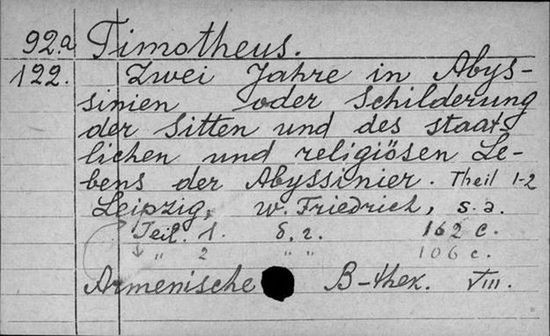 92.a Timotheus.
122. Zwei Jahre in Abys-
sinien oder Schilderung
der Sitten und des staat-
lichen und religiösen Le-
bens der Abyssinier. Theil 1-2
Leipzig, W. Friedrich, s.a.
Teil. 1. б. г. 162 c.
" 2 " " 106 c.
Armenische B-thek. VIII.